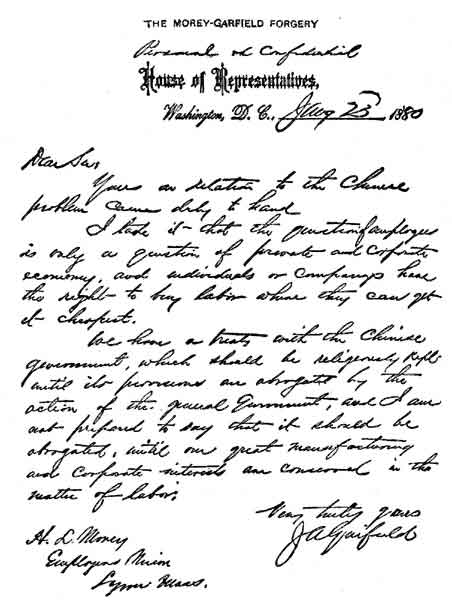 THE MOREY-GARFIELD FORGERY
Personal and Confidential
House of Representatives,
Washington, D. C., Jany 23 1880
Dear Sir
Yours in relation to the Chinese
problem came duly to hand
I take it that the question of employes
is only a question of private and corporate
economy, and individuals or companys have
the right to buy labor where they can get
it cheapest.
We have a treaty with the Chinese
government, which should be religeously kept
until its provisions are abrogated by the
action of the general Government, and I am
not prepared to say that it should be
abrogated, until our great manufacturing
and corporate interests are conserved in the
matter of labor.
Very truly yours
J A Garfield
H. L. Morey
Employers Union
Lynn Mass.